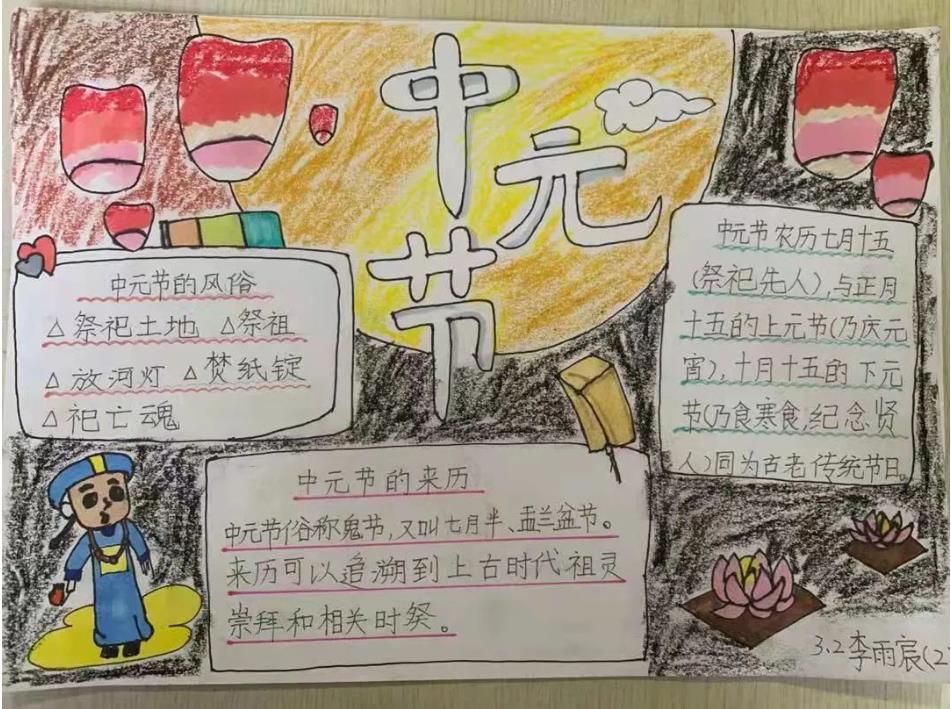 中元节
中元节的风俗
△祭祀土地 △祭祖
△放河灯 △焚纸锭
△祀亡魂
中元节农历七月十五
(祭祀先人),与正月
十五的上元节(乃庆元
宵),十月十五的下元
节(乃食寒食,纪念贤
人)同为古老传统节日。
中元节的来历
中元节俗称鬼节,又叫七月半、盂兰盆节。
来历可以追溯到上古时代祖灵
崇拜和相关时祭。
3.2李雨宸(2